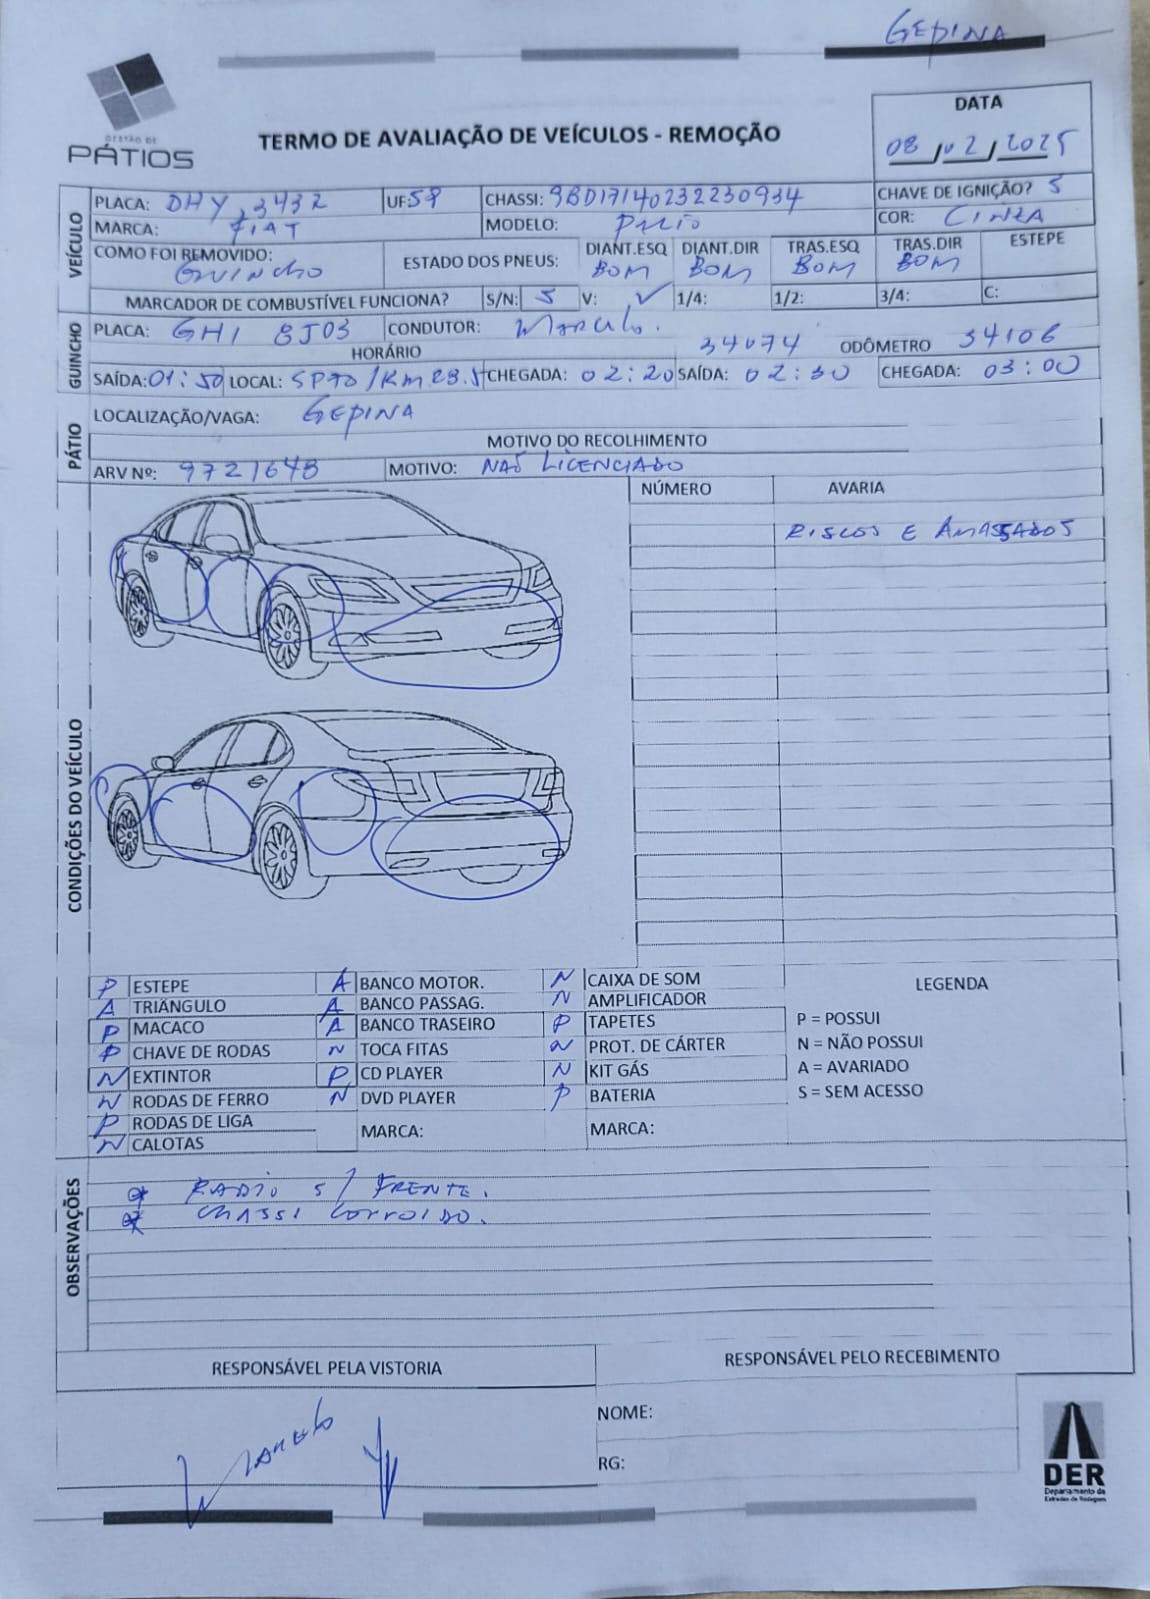 GEPINA
GESTÃO DE
PÁTIOS
TERMO DE AVALIAÇÃO DE VEÍCULOS - REMOÇÃO
DATA
08 / 02 / 2025
VEÍCULO
PLACA: DHY 3432 UF: SP CHASSI: 9BD17140232230934 CHAVE DE IGNIÇÃO? S
MARCA: FIAT MODELO: PALIO COR: CINZA
COMO FOI REMOVIDO: GUINCHO ESTADO DOS PNEUS: DIANT.ESQ BOM DIANT.DIR BOM TRAS.ESQ BOM TRAS.DIR BOM ESTEPE
MARCADOR DE COMBUSTÍVEL FUNCIONA? S/N: S V: ✓ 1/4: 1/2: 3/4: C:
GUINCHO
PLACA: GHI 8J03 CONDUTOR: Marcelo.
HORÁRIO 34074 ODÔMETRO 34106
SAÍDA: 01:50 LOCAL: SP70/KM 28.5 CHEGADA: 02:20 SAÍDA: 02:30 CHEGADA: 03:00
PÁTIO
LOCALIZAÇÃO/VAGA: GEPINA
MOTIVO DO RECOLHIMENTO
ARV Nº: 9721648 MOTIVO: NAÕ LICENCIADO
CONDIÇÕES DO VEÍCULO
NÚMERO AVARIA
RISCOS E AMASSADOS
P ESTEPE A BANCO MOTOR. N CAIXA DE SOM
A TRIÂNGULO A BANCO PASSAG. N AMPLIFICADOR
P MACACO A BANCO TRASEIRO P TAPETES
P CHAVE DE RODAS N TOCA FITAS N PROT. DE CÁRTER
N EXTINTOR P CD PLAYER N KIT GÁS
N RODAS DE FERRO N DVD PLAYER P BATERIA
P RODAS DE LIGA MARCA: MARCA:
N CALOTAS
LEGENDA
P = POSSUI
N = NÃO POSSUI
A = AVARIADO
S = SEM ACESSO
OBSERVAÇÕES
* RADIO S/ FRENTE.
* CHASSI CORROIDO.
RESPONSÁVEL PELA VISTORIA
Marcelo
RESPONSÁVEL PELO RECEBIMENTO
NOME:
RG:
DER
Departamento de
Estradas de Rodagem